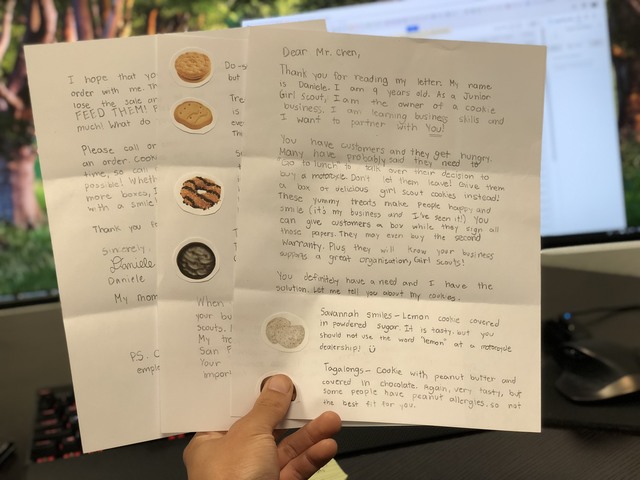 I hope that yo
order with me. Th
lose the sale an
FEED THEM! P
much! What do
Please call or
an order. Cook
time, so call
possible! Wheth
more boxes, I
with a smile!
Thank you fo
Sincerely,
Daniele
Daniele
My mom
P.S. C
emple
Do-s
but
Tre
is
eve
Th
When
your bu
Scouts. I
My tr
San F
Your
impor
Dear Mr. Chen,
Thank you for reading my letter. My name
is Daniele. I am 9 years old. As a Junior
Girl Scout, I am the owner of a cookie
business. I am learning business skills and
I want to partner with You!
You have customers and they get hungry.
Many have probably said they need to
"Go to lunch" to talk over their decision to
buy a motorcycle. Don't let them leave! Give them
a box of delicious girl scout cookies instead!
These yummy treats make people happy and
smile (it's my business and I've seen it!) You
can give customers a box while they sign all
those papers. They may even buy the second
warranty. Plus, they will know your business
supports a great organization, Girl Scouts!
You definitely have a need and I have the
solution. Let me tell you about my cookies.
Savannah smiles - Lemon cookie covered
in powdered sugar. It is tasty, but you
should not use the word "lemon" at a motorcycle
dealership! :)
Tagalongs - Cookie with peanut butter and
covered in chocolate. Again, very tasty, but
some people have peanut allergies, so not
the best fit for you.